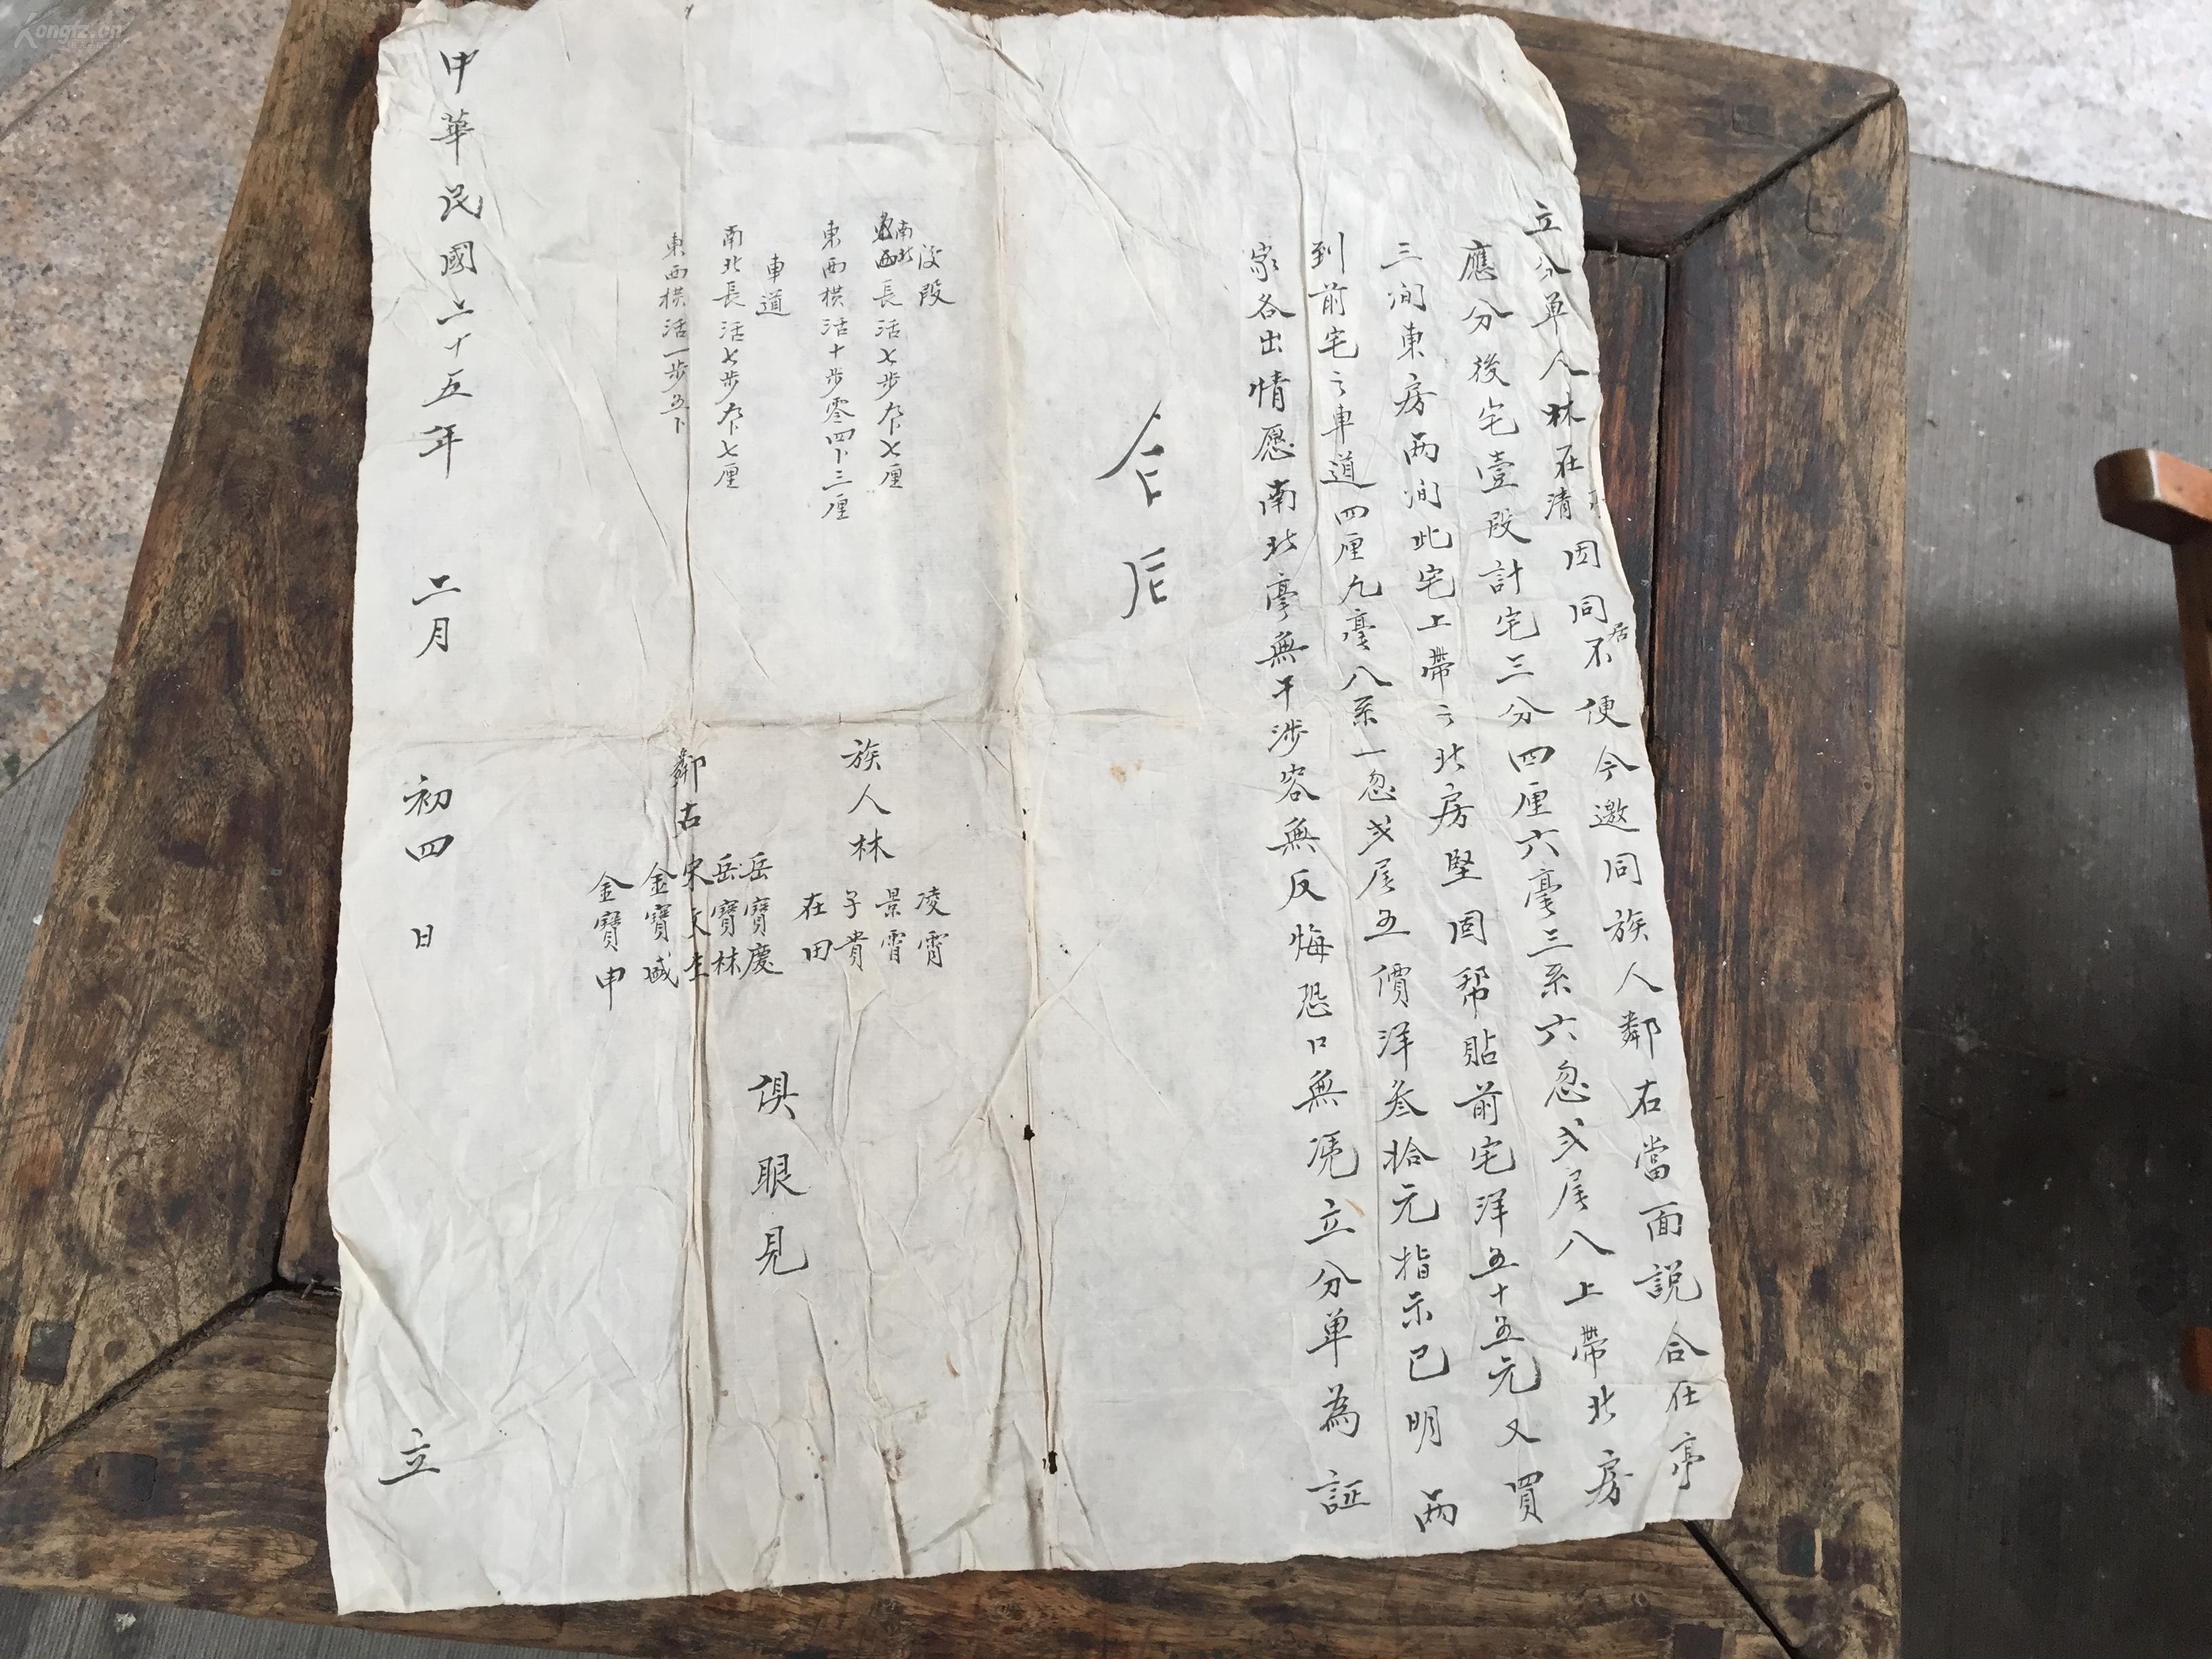 立分單人林在清因同居不便今邀同族人鄰右當面說合在亭
應分後宅壹段計宅三分四厘六毫三系六忽弍尾八上帶北房
三间東房兩间此宅上帶之北房堅固帮貼前宅洋五十五元又買
到前宅之車道四厘九毫八系一忽弍尾五價洋叁拾元指示已明兩
家各出情愿南北毫無干涉容無反悔恐口無凭立分單為証
段
長活七步七厘
東西横活十步零四下三厘
車道
南北長活七步七厘
東西横活一步五下
族人林
凌霄
景霄
子貴
在田
鄰右
岳寶慶
岳寶林
宋文
金寶城
金寶申
俱眼見
中華民國二十五年 二月 初四日 立
Kongfz.cn